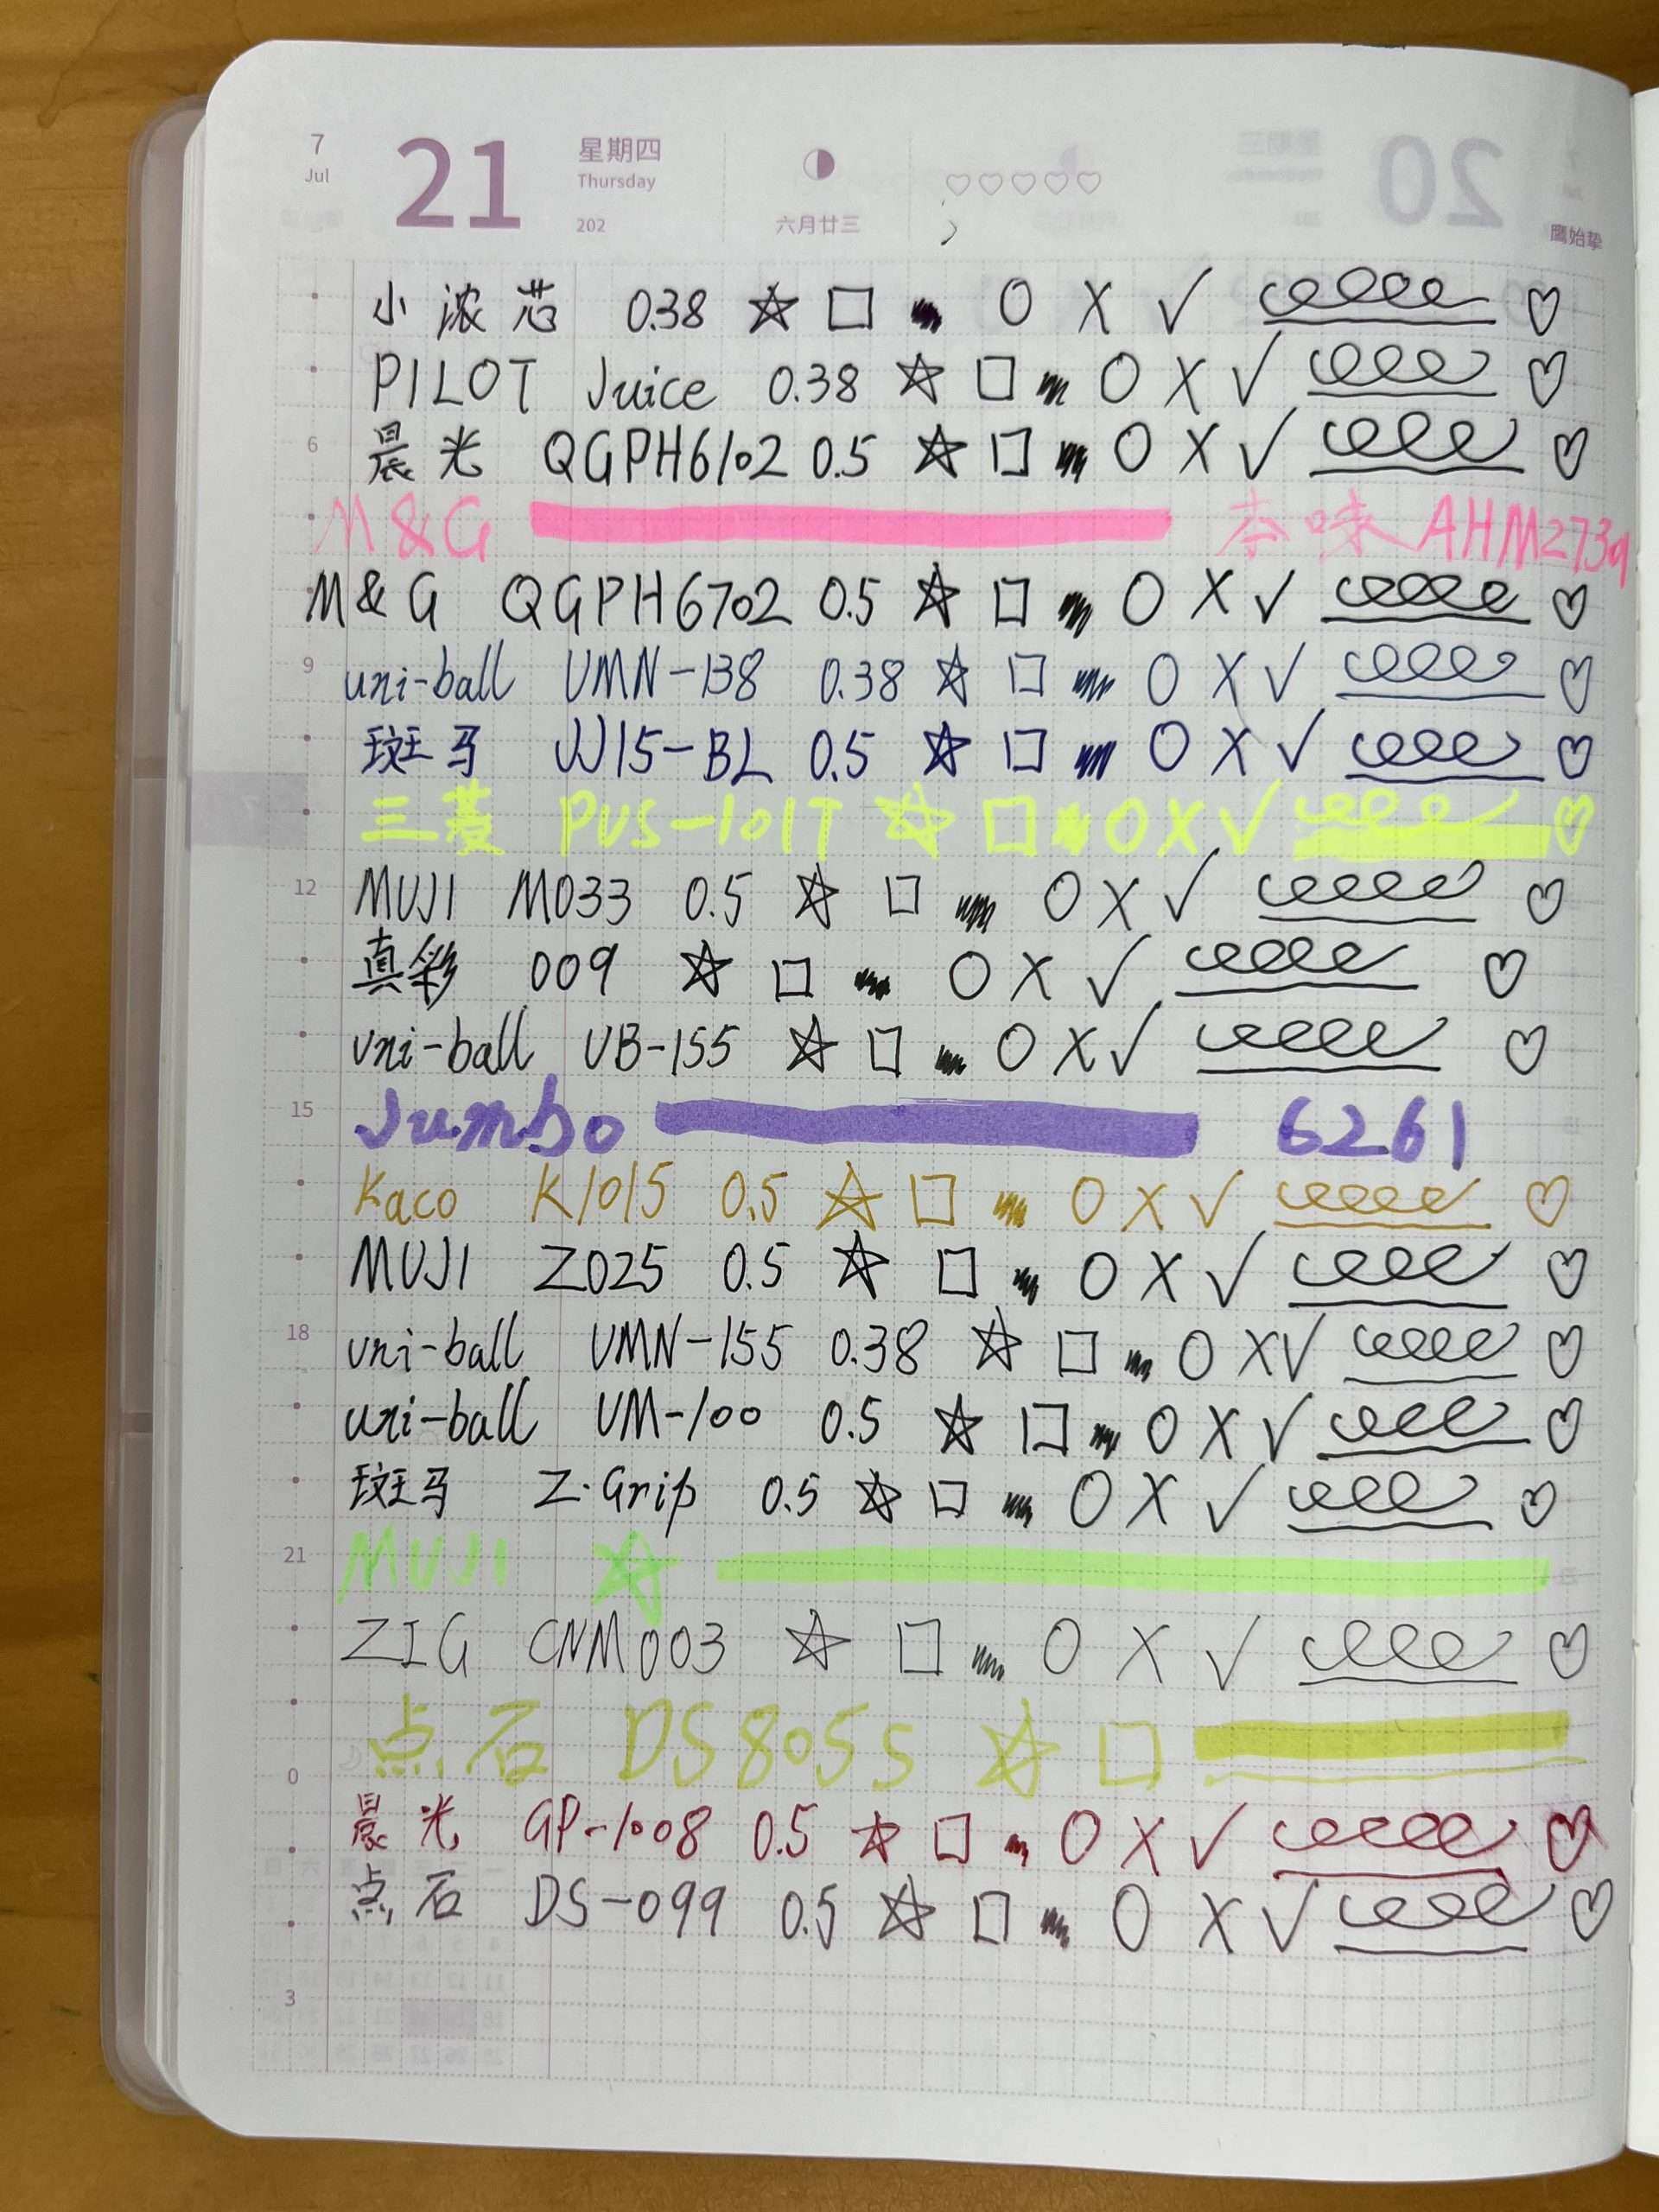 7 21 星期四
Jul Thursday
202 六月廿三
鷹始挚
小浓芯 0.38
PILOT Juice 0.38
6 晨光 QGPH6102 0.5
M&G 本味 AHM273
M&G QGPH6702 0.5
9 uni-ball UMN-138 0.38
斑马 JJ15-BL 0.5
三菱 PUS-101T
12 MUJI M033 0.5
真彩 009
uni-ball UB-155
15 Jumbo 6261
Kaco K1015 0.5
MUJI Z025 0.5
18 uni-ball UMN-155 0.38
uni-ball UM-100 0.5
斑马 Z·Grip 0.5
21 MUJI
ZIG CNM003
点石 DS8055
0
晨光 GP-1008 0.5
点石 DS-099 0.5
3